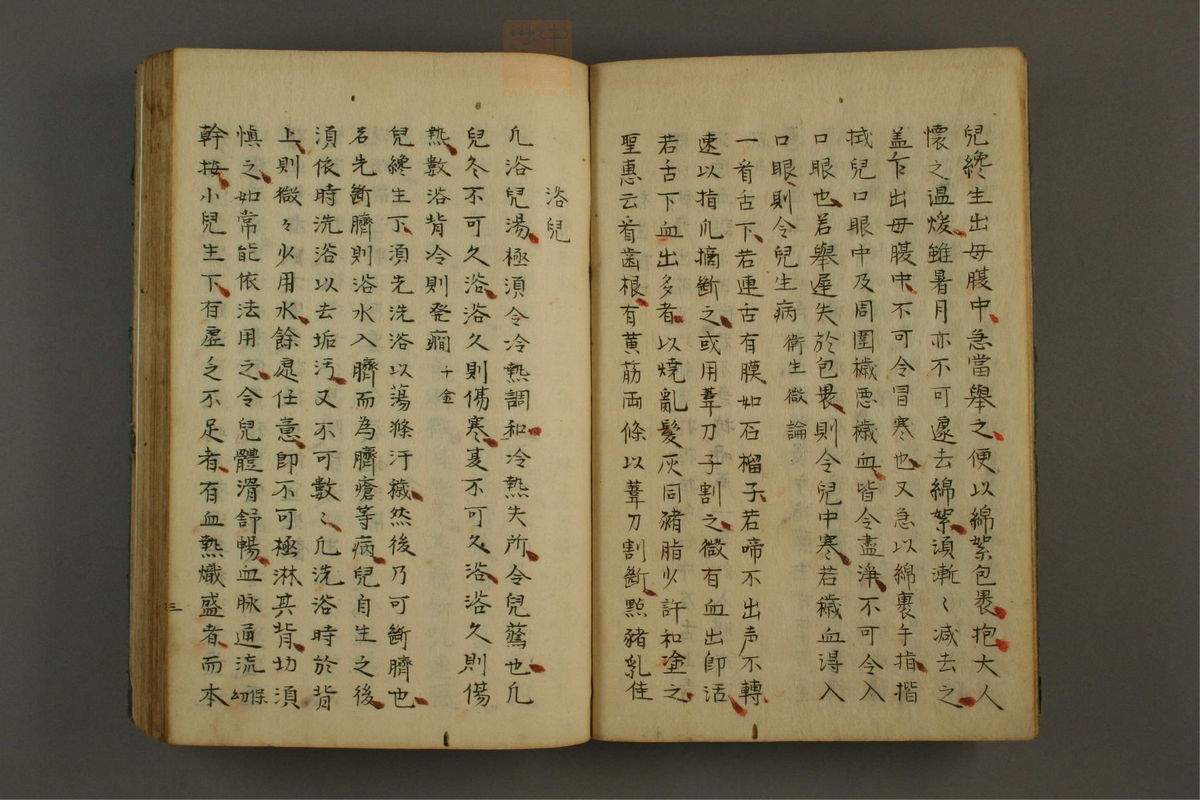 兒纔生出母腹中急當舉之便以綿絮包裹抱大人
懷之温煖雖暑月亦不可遽去綿絮須漸〻減去之
盖乍出母腹中不可令冒寒也又急以綿裹手指揩
拭兒口眼中及周圍穢悪穢血皆令盡淨不可令入
口眼也若舉遲失於包裹則令兒中寒若穢血得入
口眼則令兒生病 衛生微論
一看舌下若連舌有膜如石榴子若啼不出声不轉
速以指爪摘斷之或用葦刀子割之微有血出即活
若舌下血出多者以燒亂髮灰同猪脂少許和塗之
聖惠云看齒根有黄筋両條以葦刀割斷點猪乳佳
浴兒
凢浴兒湯極須令冷熱調和冷熱失所令兒驚也凢
兒冬不可久浴浴久則傷寒夏不可久浴浴久則傷
熱數浴背冷則発癇 千金
兒纔生下須先洗浴以蕩滌汙穢然後乃可斷臍也
若先斷臍則浴水入臍而為臍瘡等病兒自生之後
須依時洗浴以去垢汚又不可數〻凢洗浴時於背
上則微々少用水餘處任意即不可極淋其背切須
慎之如常能依法用之令兒體滑舒暢血脉通流 幼保
幹按小兒生下有虚乏不足者有血熱熾盛者而本
三